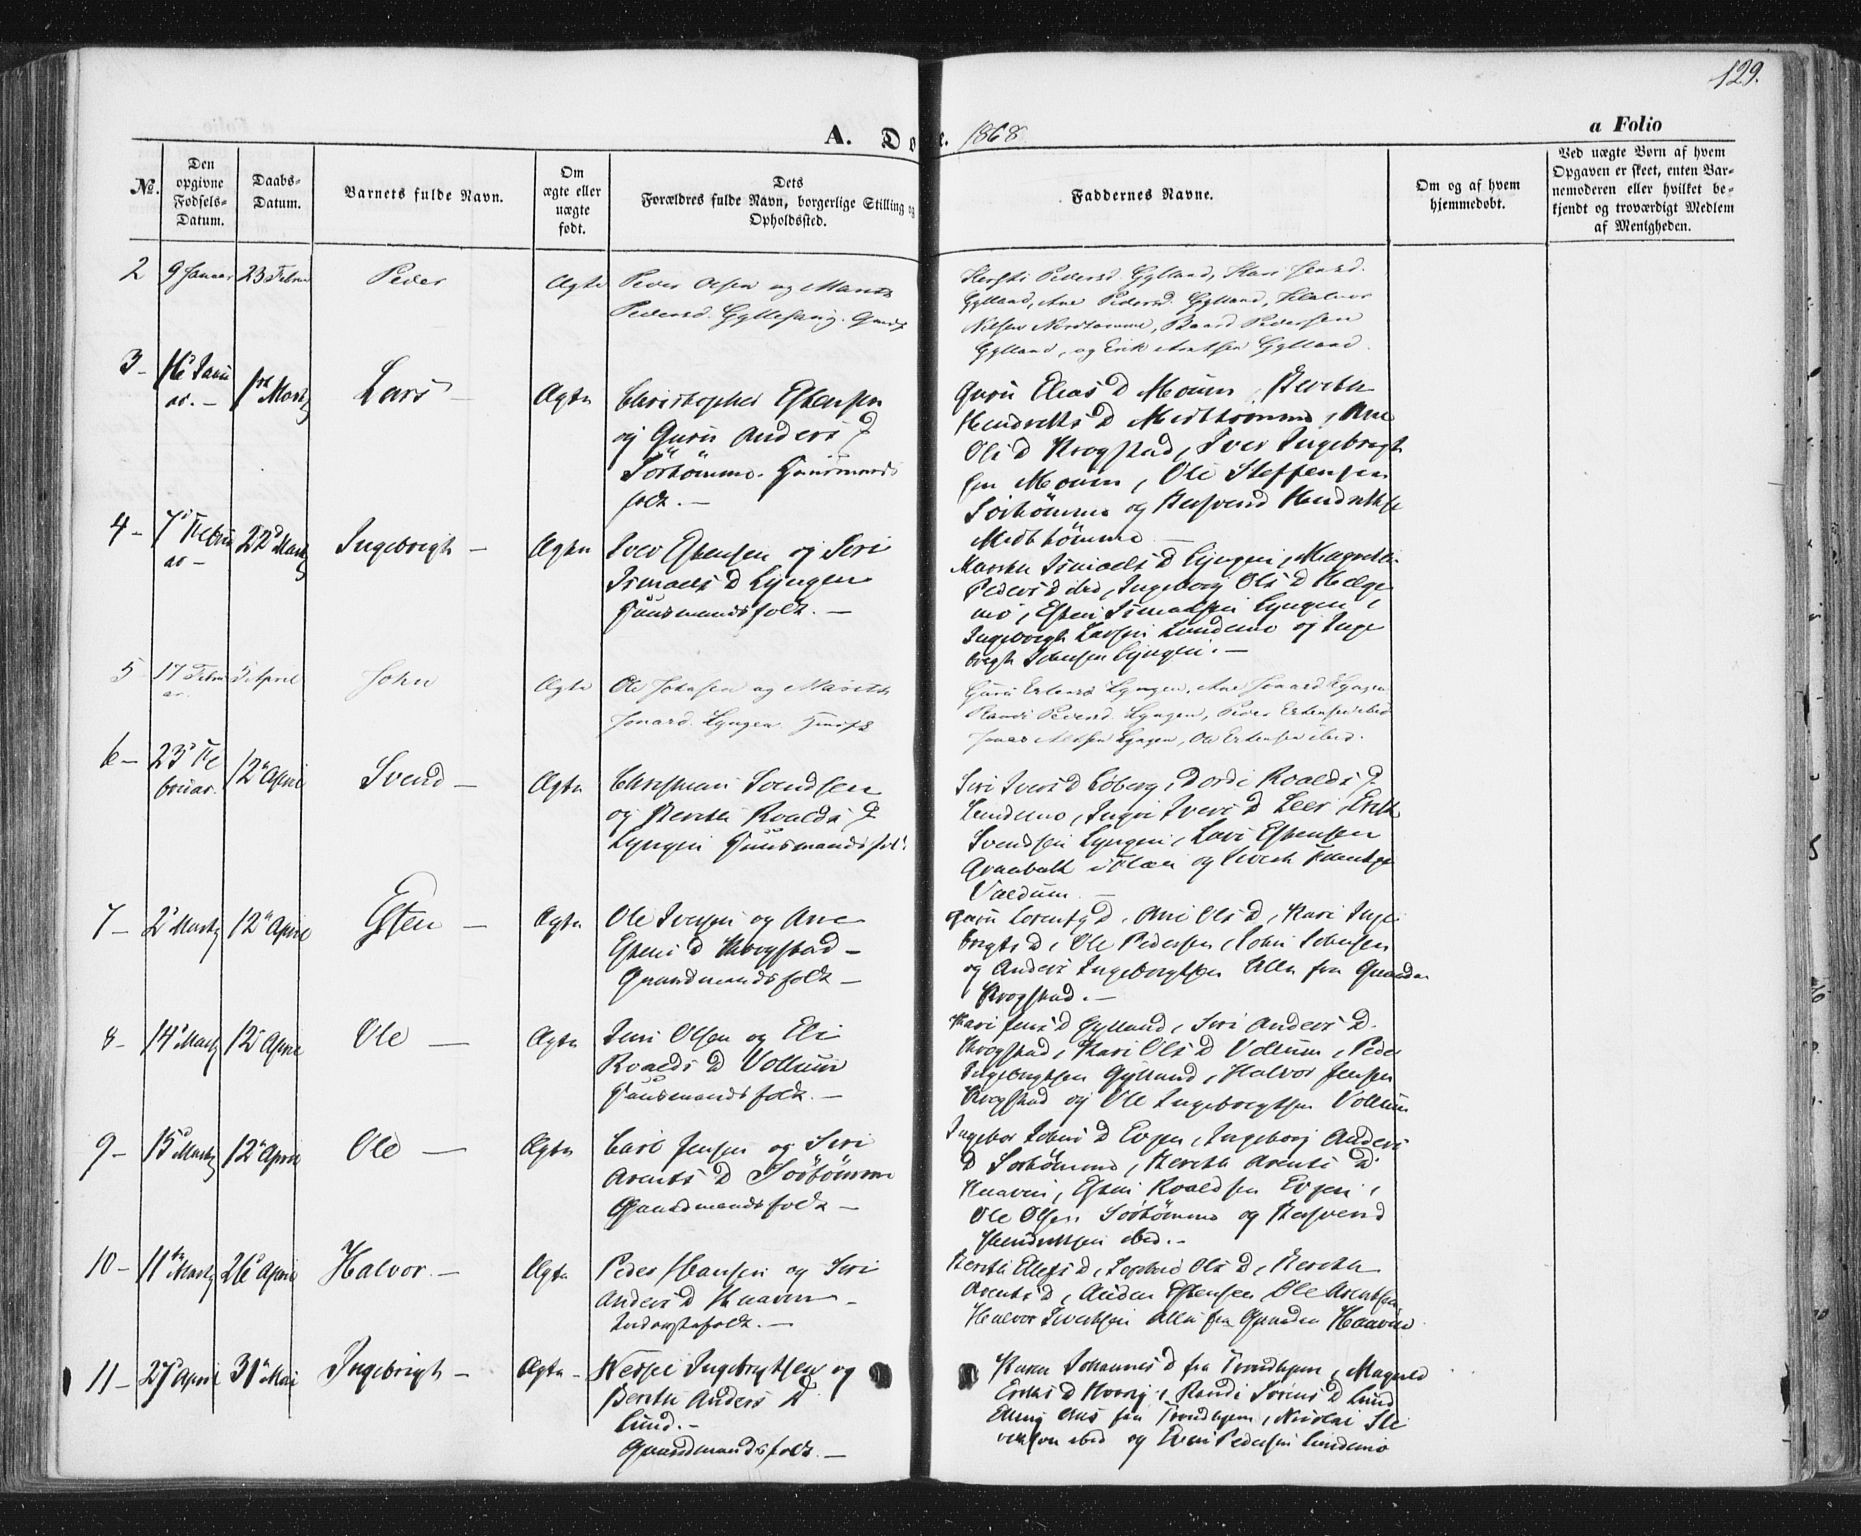 129.
A. Do
1868
a Folio
No.
Den opgivne Fødsels-Datum.
Daabs-Datum.
Barnets fulde Navn.
Om ægte eller uægte født.
Dets Forældres fulde Navn, borgerlige Stilling og Opholdssted.
Faddernes Navne.
Om og af hvem hjemmedøbt.
Ved uægte Børn af hvem Opgaven er skeet, enten Barnemoderen eller hvilket bekjendt og troværdigt Medlem af Menigheden.
2
9 Januar
23 Februar
Peder
Ægte
Peder Olsen og Marit
Pedersd. Gyllesang.
Pedersd. Gylland, Kari Jensd.
Gylland, Ane Pedersd. Gylland, Halvor
Nilsen Midttømme, Baard Pedersen
Gylland, og Erik Arntsen Gylland.
3 -
16 Janu
ar. -
1ste Marts
Lars -
Ægte
Christopher Estensen
og Guru Anders D
Sörtömme. Huusmands
folk. -
Guru Elias D Moum, Berith
Hendriks D Midttömme, Ane
Ols D Krogstad, Iver Ingebrigt
sen Moum, Ole Steffensen
Sörtömme og Hendrikse
Midttömme -
4 -
7 Febru
ar -
22 Marts
Ingebrigt -
Ægte
Iver Estensen og Siri
Ismaels D Lyngen
Huusmandsfolk. -
Marith Ismaels D Lyngen, Magnhild
Peders D ibd, Ingeborg Ols D Hælge
mo, Esten Ismaelsen Lyngen,
Ingebrigt Larsen Lundemo og Inge
brigt Johnsen Lyngen. -
5
17 Febru
ar
5 April
John
Ægte
Ole Johnsen og Marith
Jonasd. Lyngen
Guru Lyngen, Ane Jonasd Lyngen
Randi Pedersd. Lyngen, Peder Estensen ibid
Lyngen, Ole Estensen ibid.
6 -
23 Fe
bruar.
12 April
Svend -
Ægte
Christian Svendsen
og Berith Roalds D
Lyngen Huusmandsfol.
Siri Ivers D Løberg, Dordi Roalds D
Lundemo, Ingri Ivers D Leer, Erik
Svendsen Lyngen, Lars Estensen
Graabak i Flaa og Sivert
Valdum -
7 -
2 Marts
12 April
Esten -
Ægte
Ole Iversen og Ane
Estens D Krogstad -
Gaardmandsfolk -
Guru Lorents D, Ane Ols D, Kari Inge
brigts D, Ole Pedersen, John Johnsen
og Anders Ingebrigtsen Alle fra Gaarden
Krogstad. -
8 -
14 Marts
12 April
Ole -
Ægte
Jens Olsen og Eli
Roalds D Vollum
Huusmandsfolk. -
Kari Jens D Gylland, Siri Anders D
Krogstad, Kari Ols D Vollum, Peder
Ingebrigtsen Gylland, Halvor Jensen
Krogstad og Ole Ingebrigtsen Vollum
9 -
15 Marts
12 April
Ole -
Ægte
Lars Jensen og Siri
Arents D Sörtömme
Gaardmandsfolk -
Ingebor Johns D Evjen, Ingeborg Anders
D Sörtömme, Berith Arents D
Knaven, Esten Roaldsen Evjen,
Ole Olsen Sörtömme og
Hendriksen ibid. -
10 -
11te Marts
26 April
Halvor. -
Ægte
Peder Hansen og Siri
Anders D Knaven -
Inderstfolk. -
Berith Ellefs D, Ols D, Berith
Arents D, Anders Estensen Ole Arentsen
Halvor Sivertsen Alle fra Gaarden Knaven
11 -
27 April
31 Mai
Ingebrigt -
Ægte -
Ingebrigtsen og
Berith Anders D
Lund. -
Gaardmandsfolk -
Karen Johannes D fra Trondhjem, Magnild
Eriks D Hvorig, Randi Sörens D Lund
Elling Aas fra Trondhjem, Nicolai Si
vertsen ibid og Even Pedersen Lundemo